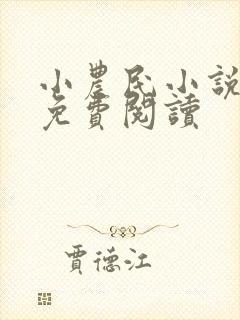 小農民小說
免費閱讀
賈德江